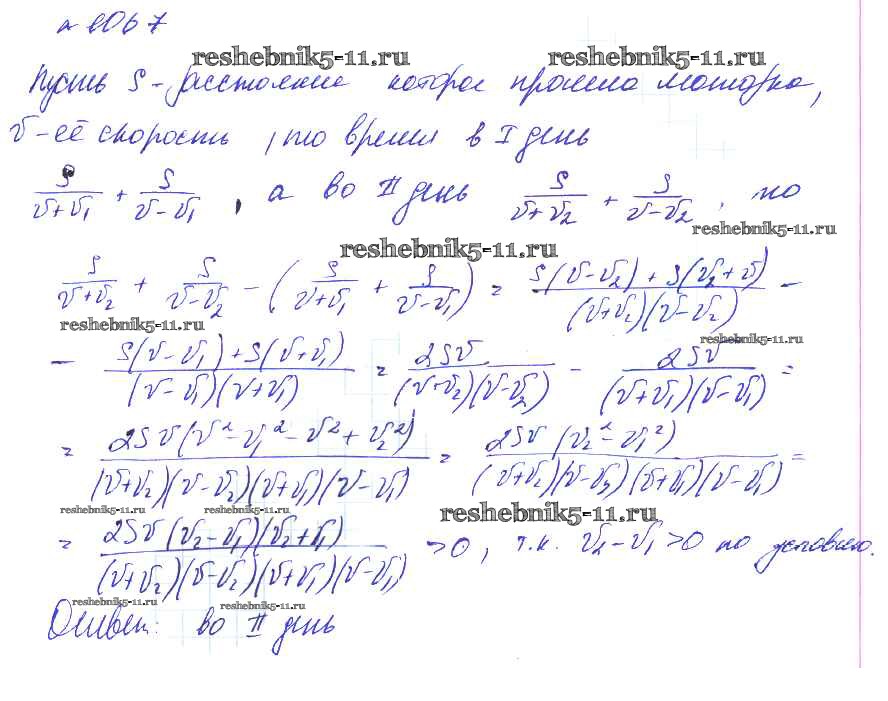 № 1067
reshebnik5-11.ru reshebnik5-11.ru
Пусть S - расстояние которое прошла моторка,
v - её скорость, то время в I день
S/(v+v₁) + S/(v-v₁), а во II день S/(v+v₂) + S/(v-v₂), то
reshebnik5-11.ru
reshebnik5-11.ru
S/(v+v₂) + S/(v-v₂) - (S/(v+v₁) + S/(v-v₁)) = (S(v-v₂) + S(v₂+v))/((v+v₂)(v-v₂)) -
reshebnik5-11.ru
reshebnik5-11.ru
- (S(v-v₁)+S(v+v₁))/((v-v₁)(v+v₁)) = 2Sv/((v+v₂)(v-v₂)) - 2Sv/((v+v₁)(v-v₁)) =
= 2Sv(v²-v₁²-v²+v₂²)/((v+v₂)(v-v₂)(v+v₁)(v-v₁)) = 2Sv(v₂²-v₁²)/((v+v₂)(v-v₂)(v+v₁)(v-v₁)) =
reshebnik5-11.ru reshebnik5-11.ru reshebnik5-11.ru
= 2Sv(v₂-v₁)(v₂+v₁)/((v+v₂)(v-v₂)(v+v₁)(v-v₁)) >0, т.к. v₂-v₁>0 по условию.
reshebnik5-11.ru reshebnik5-11.ru
Ответ: во II день